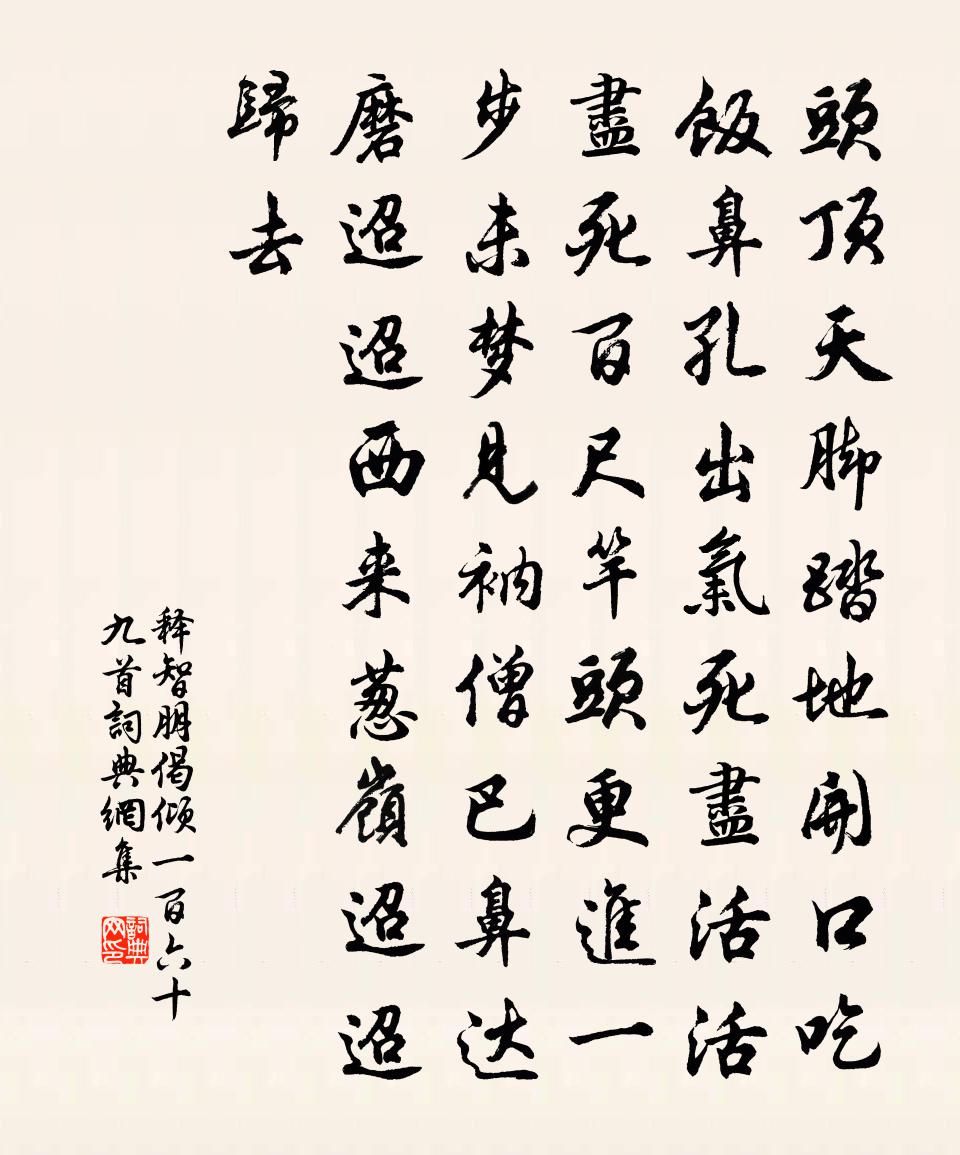 頭頂天脚踏地開口吃
飯鼻孔出氣死盡活活
盡死百尺竿頭更進一
步未梦見衲僧巴鼻达
磨迢迢西来葱嶺迢迢
歸去
释智朋偈倾一百六十
九首詞典網集
詞典网印